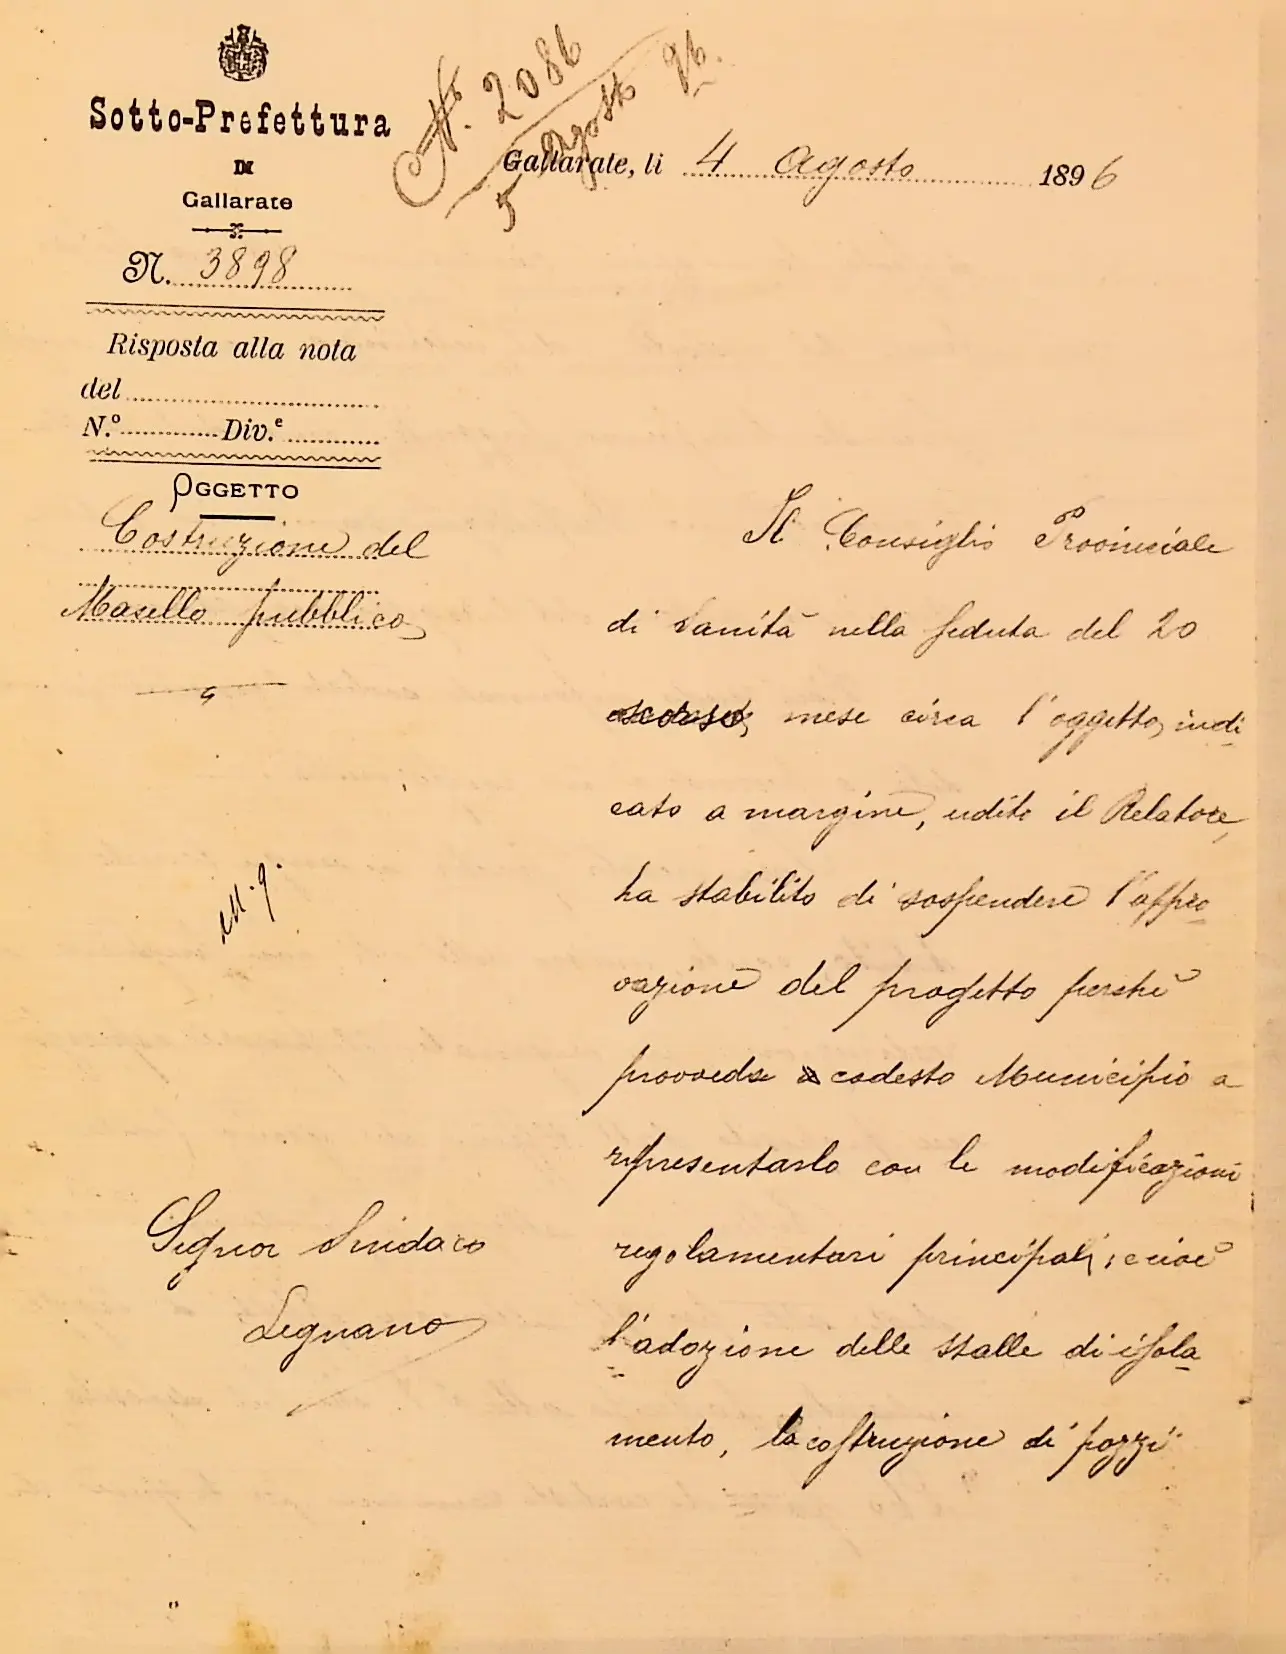 Sotto-Prefettura
DI
Gallarate
N. 3898
Risposta alla nota
del
N.º Div.e
OGGETTO
Costruzione del
Macello pubblico
N. 2086
5 Agosto 96.
Gallarate, li 4 Agosto 1896
Il Consiglio Provinciale
di Sanità nella seduta del 20
scorso mese circa l'oggetto indi
cato a margine, udito il Relatore,
ha stabilito di sospendere l'appro
vazione del progetto perchè
provveda codesto Municipio a
ripresentarlo con le modificazioni
regolamentari principali, e cioè
l'adozione delle stalle di isola
mento, la costruzione di pozzi
Signor Sindaco
Legnano